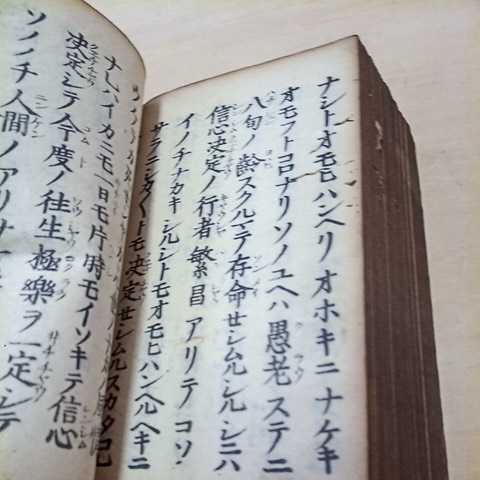 ナシトオモヒハンヘリオホキニナケキ
オモフトコロナリソノユヘハ愚老ステニ
八旬ノ齡スクルマテ存命セシムルシルシニハ
信心決定ノ行者繁昌アリテコソ
イノチナカキシルシトモオモヒハンヘルヘキニ
サラニシカ〱トモ決定セシムルスカタコレ
ナレハイカニモ一日モ片時モイソキテ信心
決定シテ今度ノ往生極樂ヲ一定シテ
ソノノチ人間ノアリサ